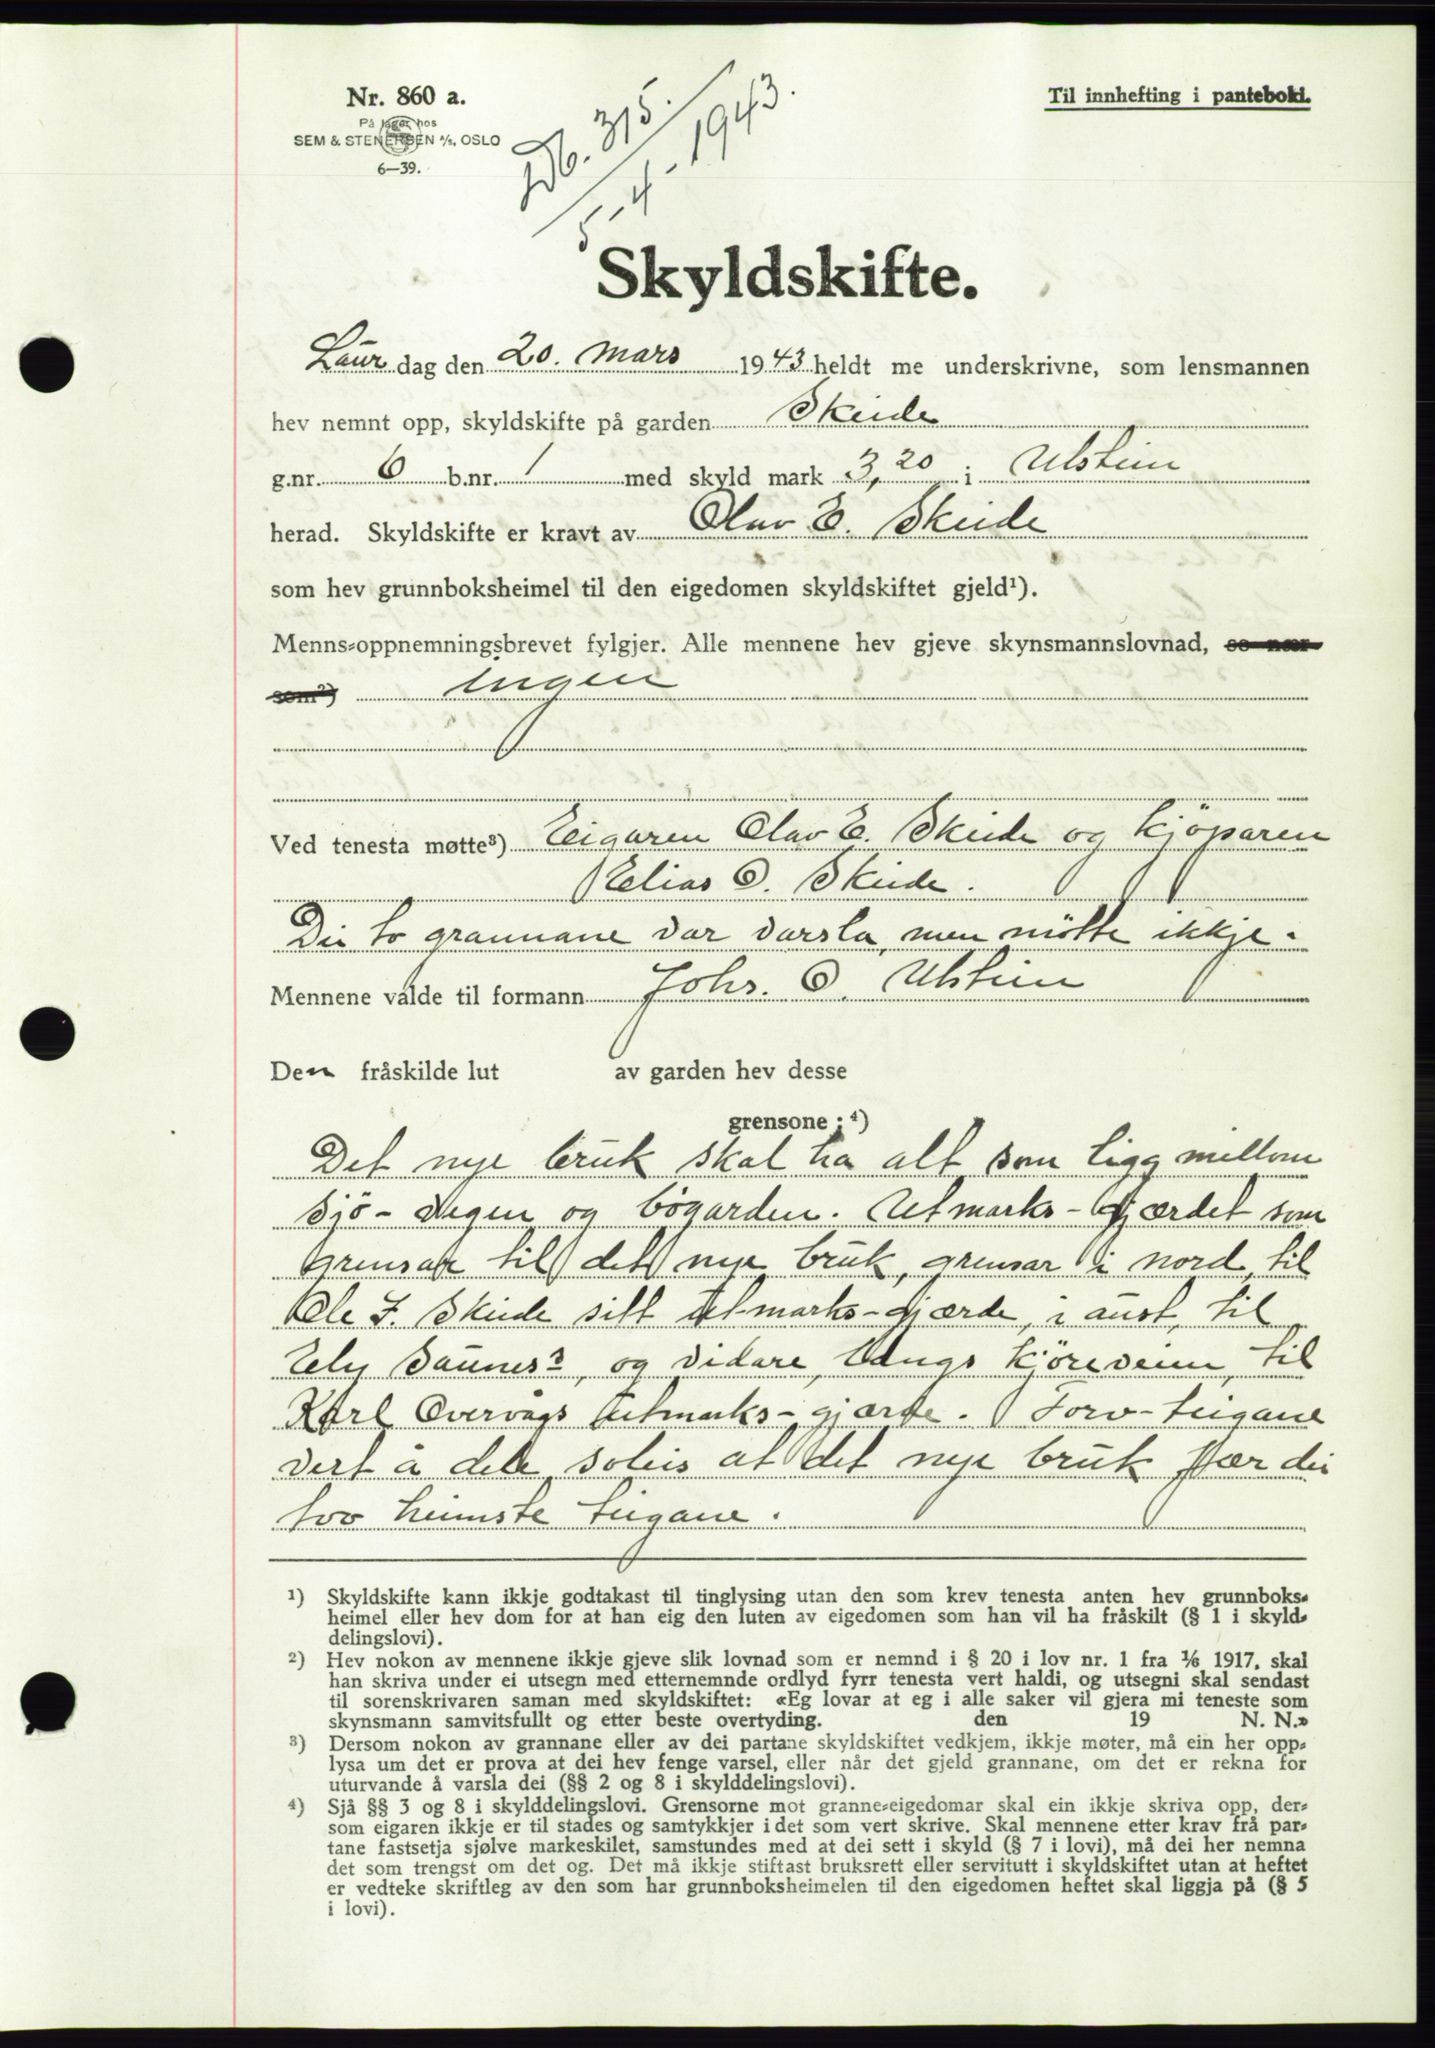 Nr. 860 a.
På lager hos
SEM & STENERSEN A/S, OSLO
6—39.
Db. 315.
5-4-1943.
Til innhefting i panteboki.
Skyldskifte.
Laur dag den 20. mars 1943 heldt me underskrivne, som lensmannen
hev nemnt opp, skyldskifte på garden Skeide
g.nr. 6 b.nr. 1 med skyld mark 3,20 i Ulstein
herad. Skyldskifte er kravt av Olav E. Skeide
som hev grunnboksheimel til den eigedomen skyldskiftet gjeld¹).
Menns-oppnemningsbrevet fylgjer. Alle mennene hev gjeve skynsmannslovnad, so nær
som²) ingen
Ved tenesta møtte³) Eigaren Olav E. Skeide og kjöparen
Elias O. Skeide.
Dei to grannane var varsla, men mötte ikkje.
Mennene valde til formann Johs. O. Ulstein
Den fråskilde lut av garden hev desse
grensone: ⁴)
Det nye bruk skal ha alt som ligg millom
sjö-vegen og bøgarden. Utmarks-gjærdet som
grensar til det nye bruk, grensar i nord, til
Ole J. Skeide sitt utmarks-gjærde, i aust, til
Ely Saunes's, og vidare, langs kjöreveien, til
Karl Overvågs utmarks-gjærde. Torv-teigane
vert å dele soleis at det nye bruk fær dei
tvo heimste teigane.
¹) Skyldskifte kann ikkje godtakast til tinglysing utan den som krev tenesta anten hev grunnboks-
heimel eller hev dom for at han eig den luten av eigedomen som han vil ha fråskilt (§ 1 i skyld-
delingslovi).
²) Hev nokon av mennene ikkje gjeve slik lovnad som er nemnd i § 20 i lov nr. 1 fra 1/6 1917, skal
han skriva under ei utsegn med etternemnde ordlyd fyrr tenesta vert haldi, og utsegni skal sendast
til sorenskrivaren saman med skyldskiftet: «Eg lovar at eg i alle saker vil gjera mi teneste som
skynsmann samvitsfullt og etter beste overtyding. den 19 N. N.»
³) Dersom nokon av grannane eller av dei partane skyldskiftet vedkjem, ikkje møter, må ein her opp-
lysa um det er prova at dei hev fenge varsel, eller når det gjeld grannane, om det er rekna for
uturvande å varsla dei (§§ 2 og 8 i skylddelingslovi).
⁴) Sjå §§ 3 og 8 i skylddelingslovi. Grensorne mot granne-eigedomar skal ein ikkje skriva opp, der-
som eigaren ikkje er til stades og samtykkjer i det som vert skrive. Skal mennene etter krav frå par-
tane fastsetja sjølve markeskilet, samstundes med at dei sett i skyld (§ 7 i lovi), må dei her nemna
det som trengst om det og. Det må ikkje stiftast bruksrett eller servitutt i skyldskiftet utan at heftet
er vedteke skriftleg av den som har grunnboksheimelen til den eigedomen heftet skal liggja på (§ 5
i lovi).